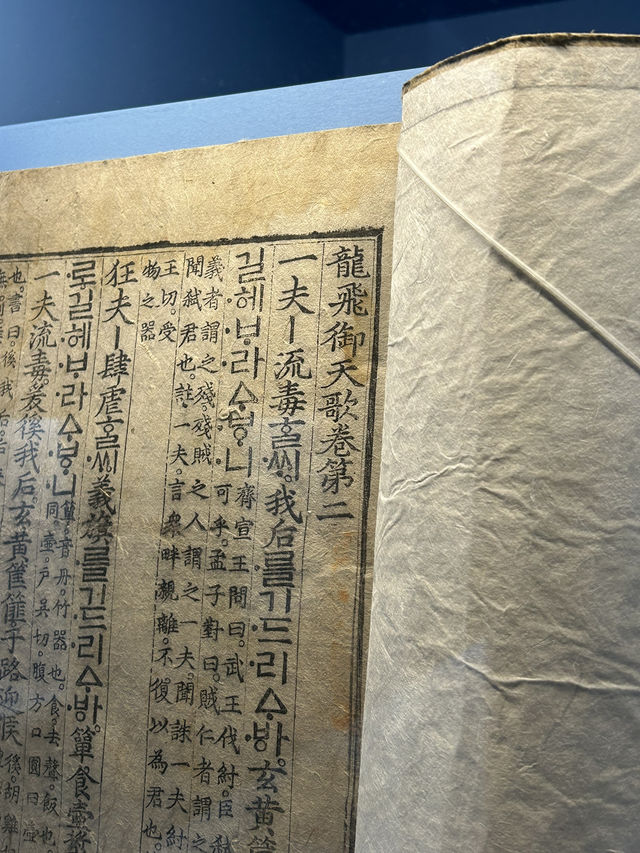 龍飛御天歌卷第二
一夫ㅣ流毒ᄒᆞᆯᄊᆡ我后를기드리ᅀᆞᄫᅡ。玄黃筐
길헤ᄇᆞ라ᅀᆞᄫᆞ니
齊宣王問曰。武王伐紂。臣弑
可乎。孟子對曰。賊仁者謂之
義者謂之殘。殘賊之人謂之一夫。聞誅一夫紂
聞弑君也。註。一夫。言衆畔親離。不復以為君也。
王切。受
物之器
狂夫ㅣ肆虐ᄒᆞᆯᄊᆡ義旗를기드리ᅀᆞᄫᅡ。簞食壺漿
로길헤ᄇᆞ라ᅀᆞᄫᆞ니
簞音丹。竹器也。食去聲。飯也。
同。壺。戶吳切。腹方口圓曰壺
一夫流毒。爰徯我后。玄黃筐篚。于路迎候。
徯。胡雞切
也。書曰。徯我后。后